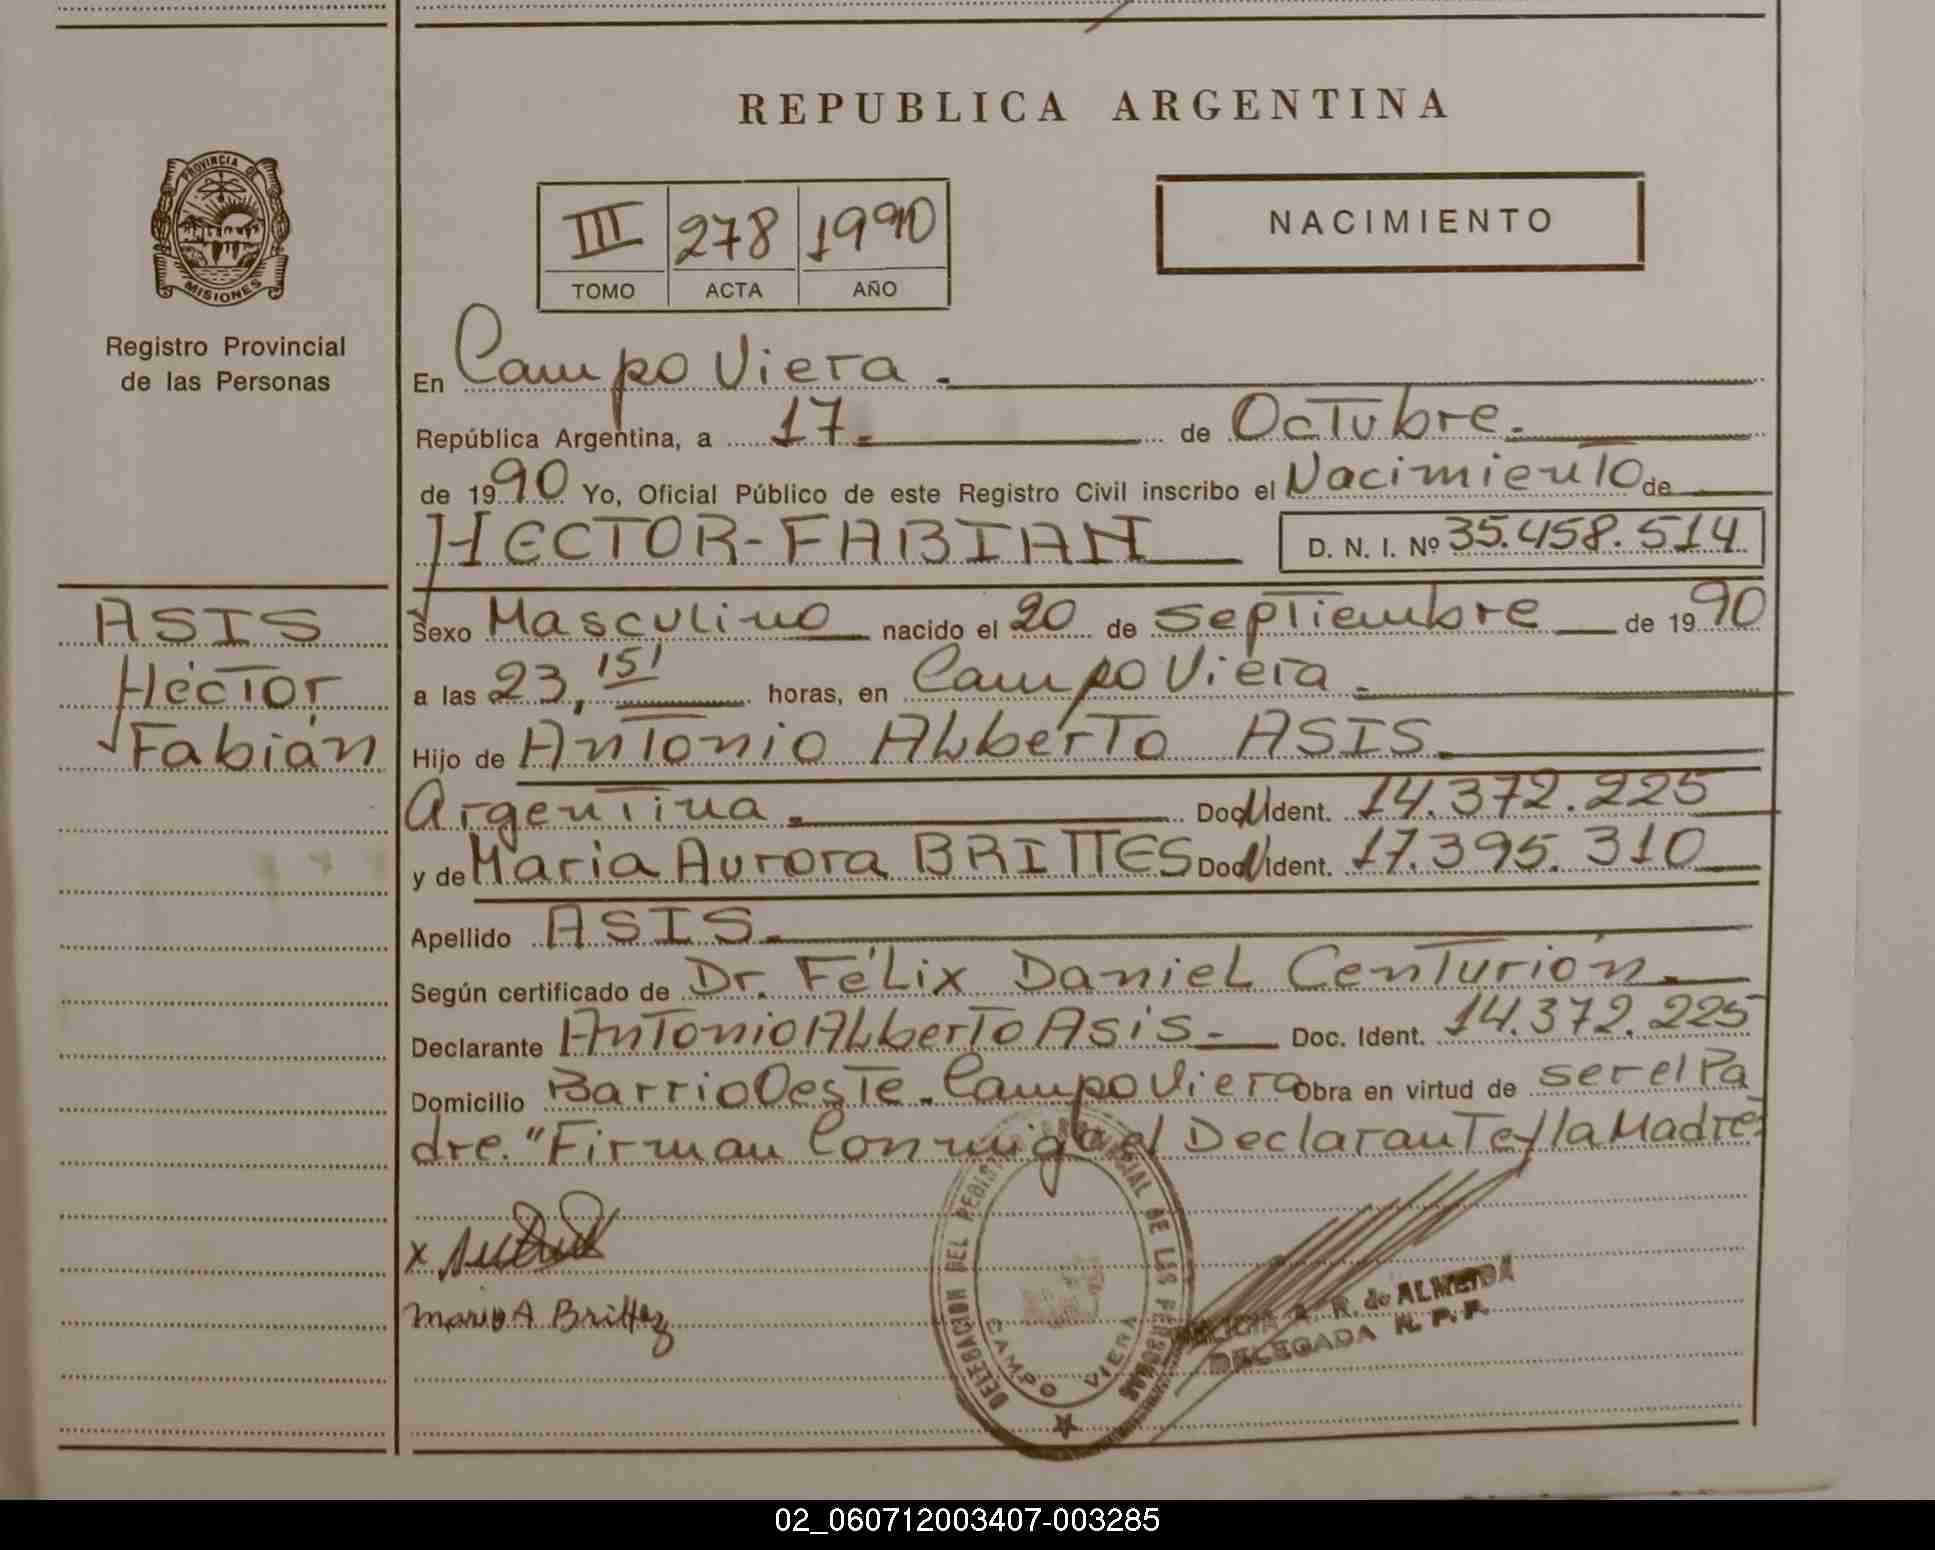 REPUBLICA ARGENTINA
PROVINCIA DE MISIONES
Registro Provincial
de las Personas
III 278 1990
TOMO ACTA AÑO
NACIMIENTO
En Campo Viera.
República Argentina, a 17. de Octubre.
de 1990 Yo, Oficial Público de este Registro Civil inscribo el Nacimiento de
HECTOR-FABIAN D. N. I. Nº 35.458.514
ASIS
Héctor
Fabián
Sexo Masculino nacido el 20 de septiembre de 1990
a las 23,15' horas, en Campo Viera.
Hijo de Antonio Alberto ASIS.
Argentina. Doc. Ident. 14.372.225
y de Maria Aurora BRITTES Doc. Ident. 17.395.310
Apellido ASIS.
Según certificado de Dr. Félix Daniel Centurión.
Declarante Antonio Alberto Asis. Doc. Ident. 14.372.225
Domicilio Barrio Oeste. Campo Viera Obra en virtud de ser el Pa
dre. "Firman Conmigo el Declarante y la Madre".
x
Maria A Brittez
DELEGACION DEL REGISTRO PROVINCIAL DE LAS PERSONAS
CAMPO VIERA
R. de ALMEIDA
DELEGADA R. P. P.
02_060712003407-003285